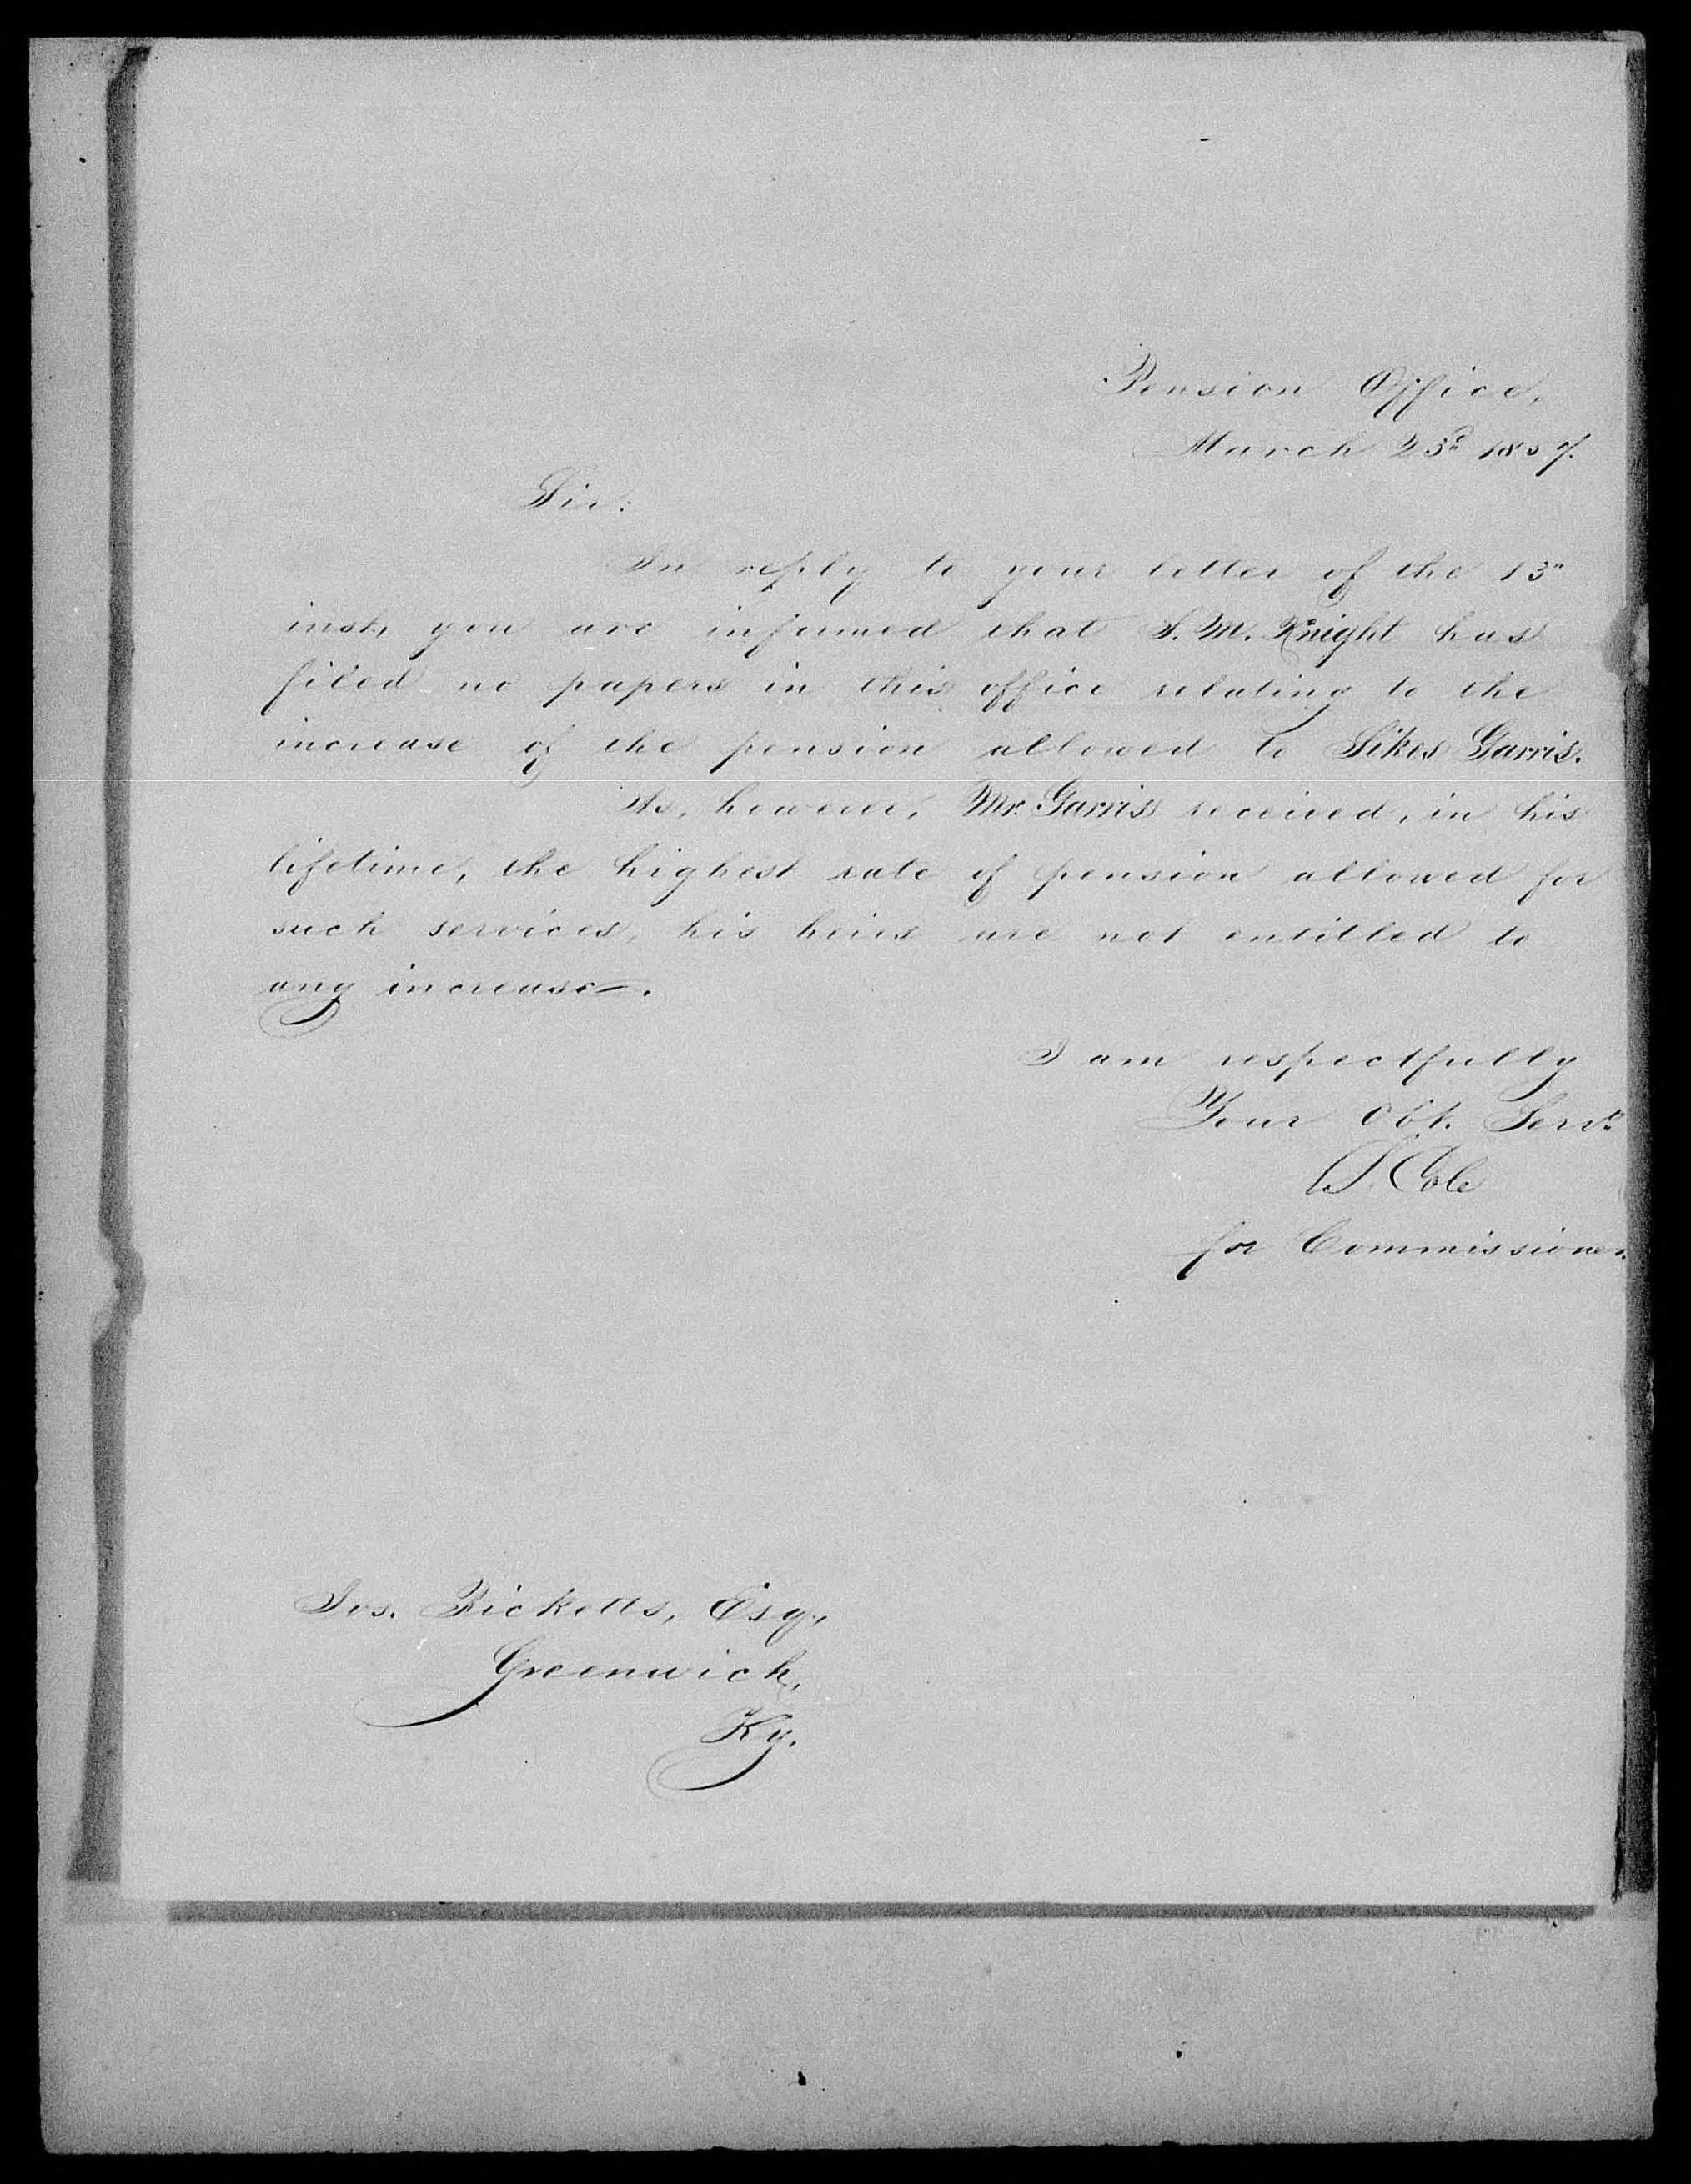 Pension Office,
March 23d 1857.
Sir:
In reply to your letter of the 13"
inst, you are informed that S. M. Knight has
filed no papers in this office relating to the
increase of the pension allowed to Sikes Garris.
As, however, Mr. Garris received, in his
lifetime, the highest rate of pension allowed for
such services, his heirs are not entitled to
any increase.
I am respectfully
Your Obt. Servt.
S. Cole
for Commissioner.
Jos. Ricketts, Esq.,
Greenwich,
Ky.